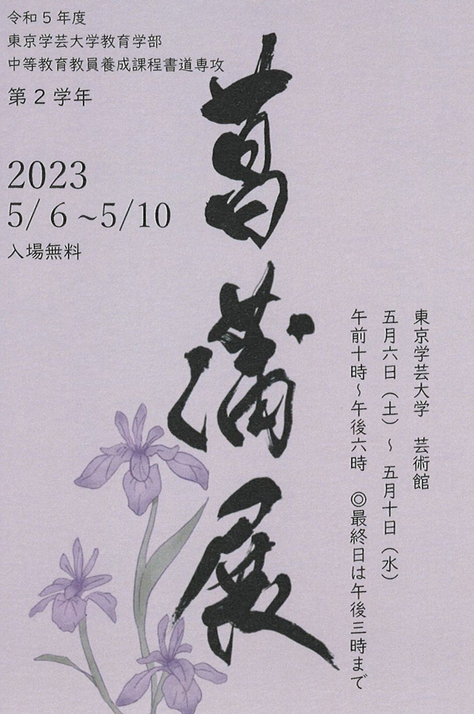 令和5年度
東京学芸大学教育学部
中等教育教員養成課程書道専攻
第2学年
2023
5/6~5/10
入場無料
菖蒲展
東京学芸大学　芸術館
五月六日（土）～五月十日（水）
午前十時～午後六時　◎最終日は午後三時まで